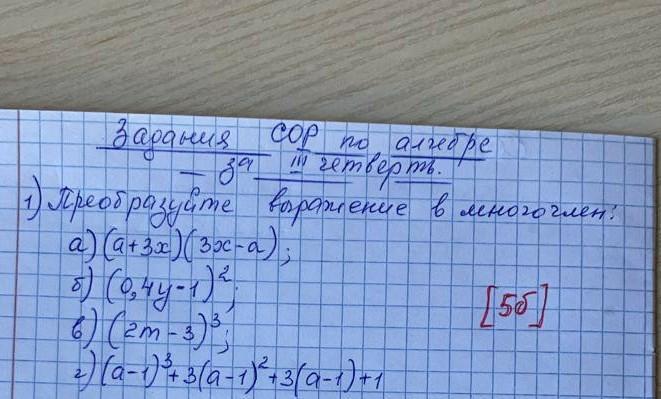 Задания СОР по алгебре
за III четверть.
1) Преобразуйте выражение в многочлен:
а) (a+3x)(3x-a);
б) (0,4y-1)²;
в) (2m-3)³;
[5б]
г) (a-1)³+3(a-1)²+3(a-1)+1